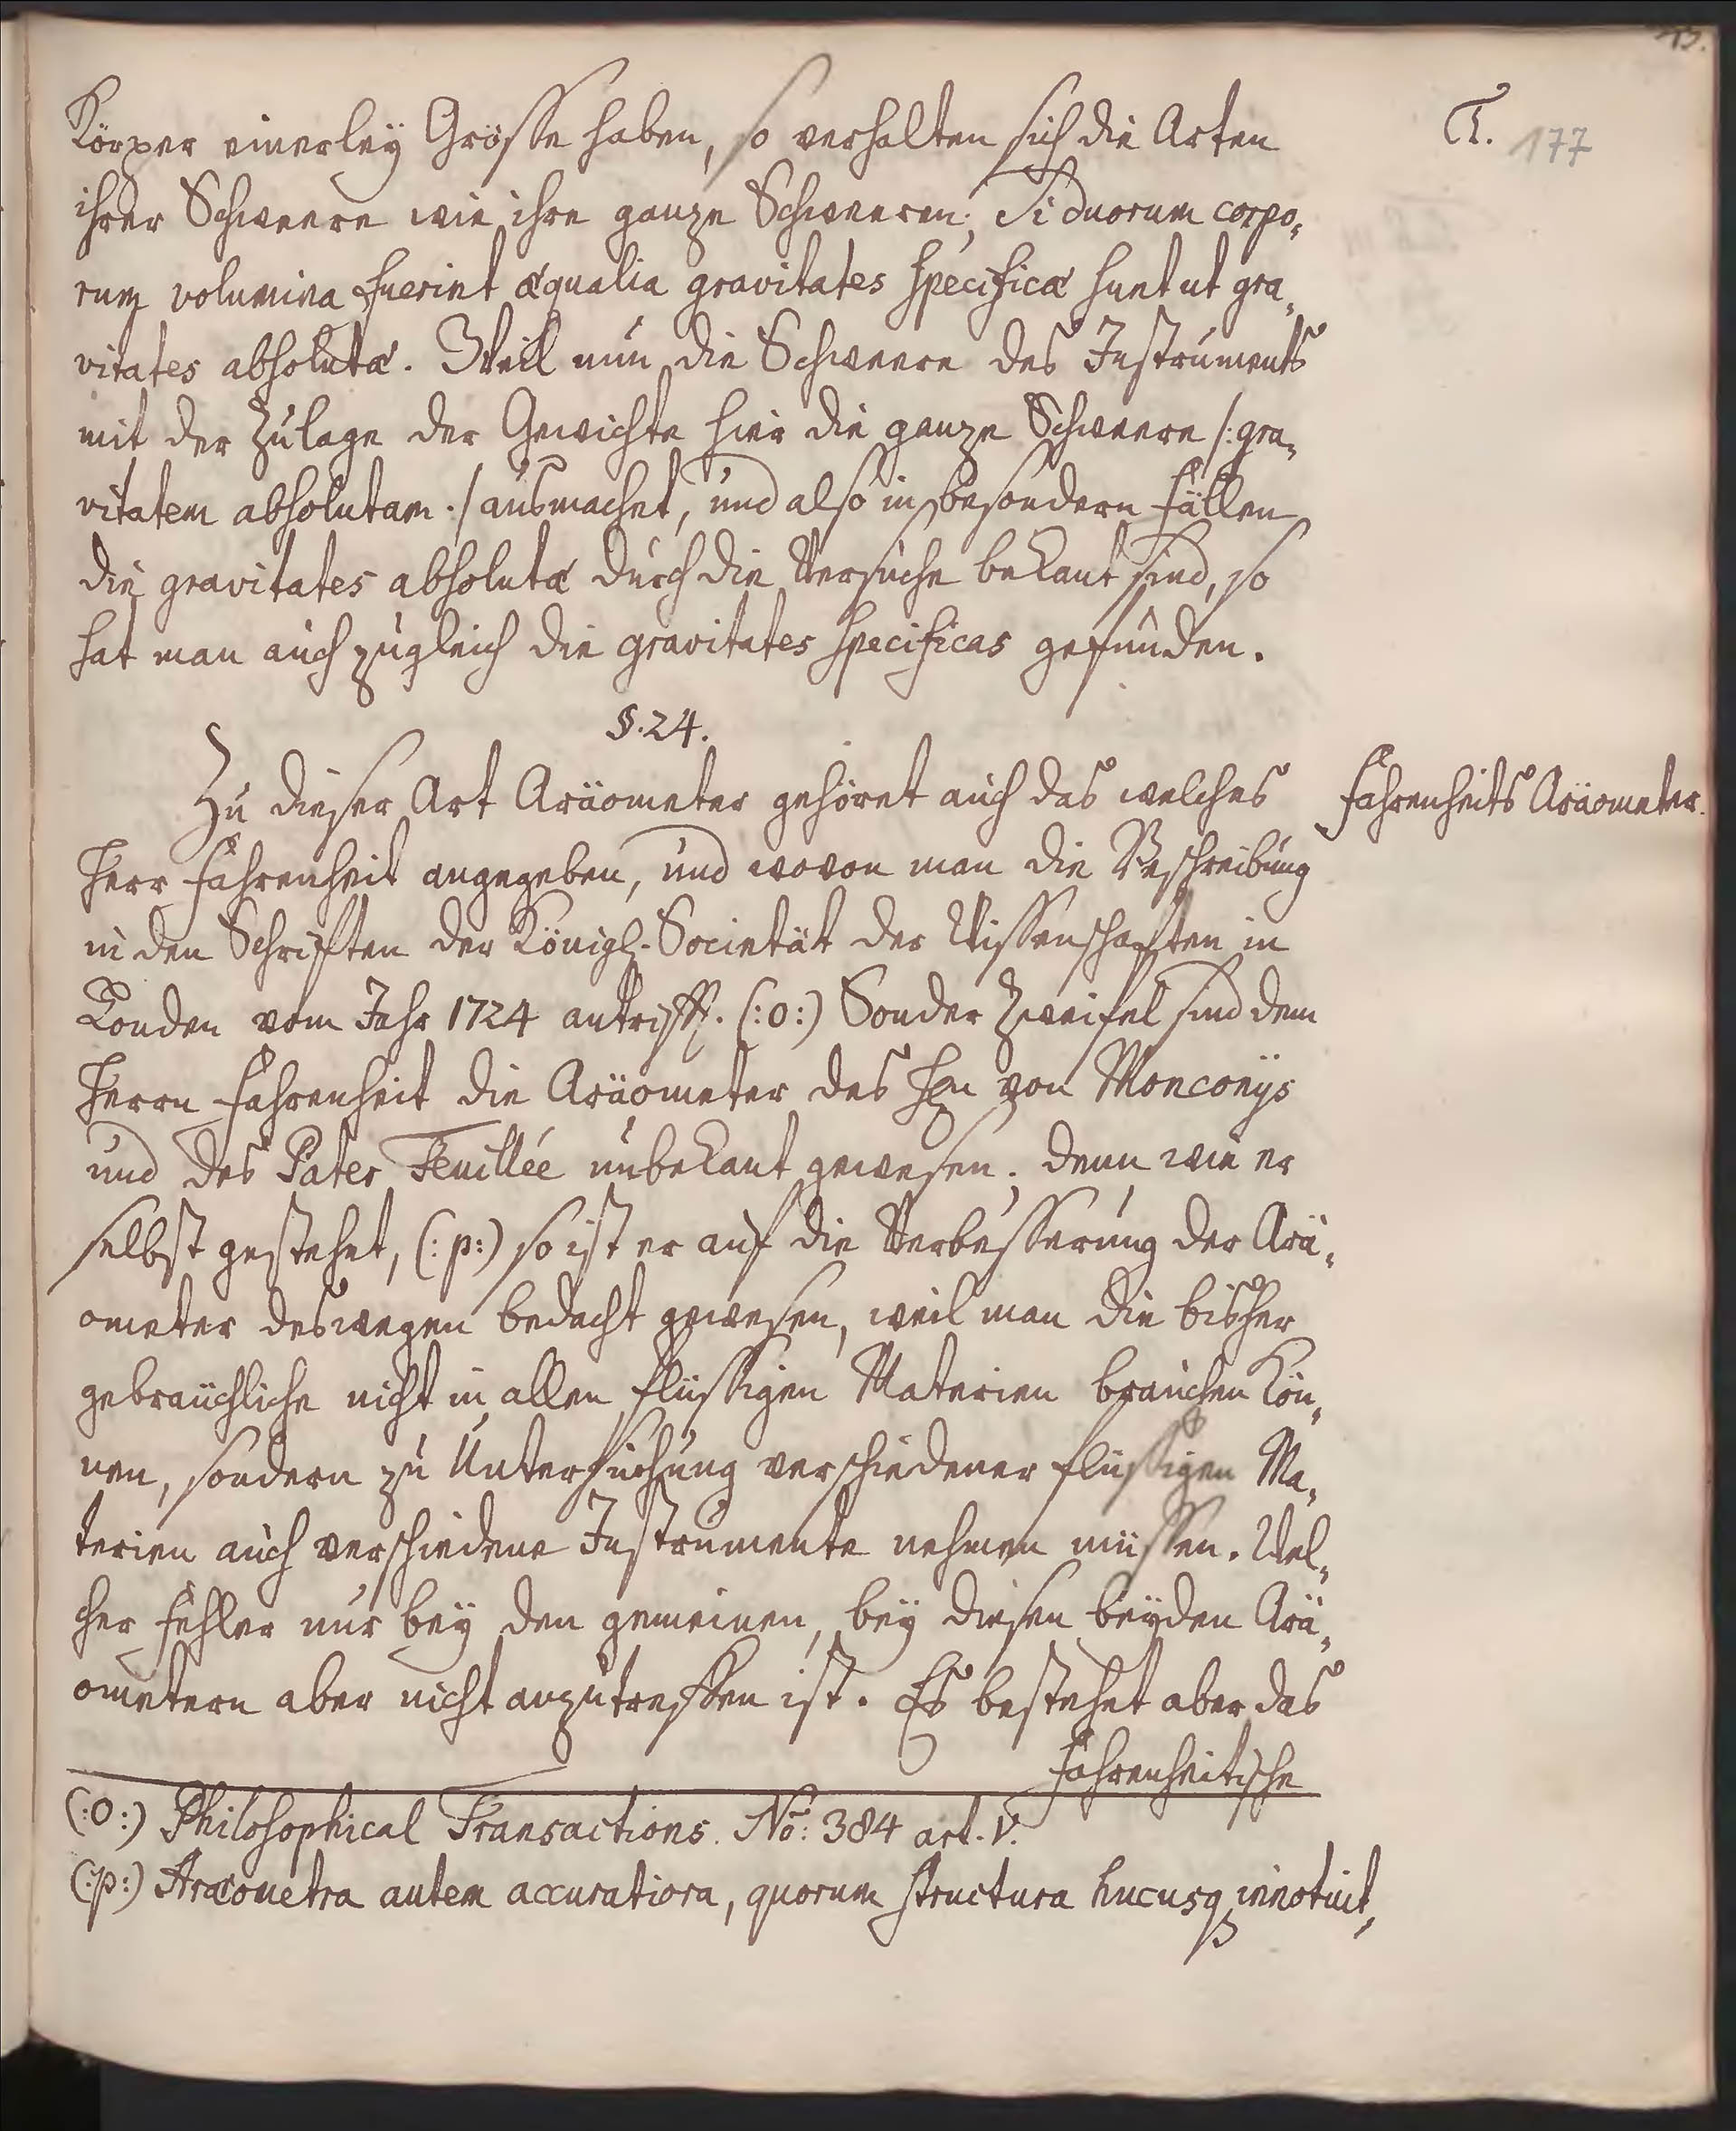 Körper einerleÿ Grösse haben, so verhalten sich die Arten
ihrer Schweere wie ihre ganze Schweeren; Si duorum corpo„
rum volumina fuerint æqualia gravitates specificæ sunt ut gra„
vitates absolutæ. Weil nun die Schweere des Instruments
mit der Zulage der Gewichte hier die ganze Schweere /: gra„
vitatem absolutam :/ ausmachet, und also in besondern Fällen
die gravitates absolutæ durch die Versuche bekant sind, so
hat man auch zugleich die gravitates specificas gefunden.
§. 24.
Zu dieser Art Aräometer gehöret auch das welches
Herr Fahrenheit angegeben, und wovon man die Beschreibung
in den Schriften der Königl. Societät der Wissenschaften in
Londen vom Jahr 1724 antrifft. (:o:) Sonder Zweifel sind dem
Herrn Fahrenheit die Aräometer des Hn von Monconÿs
und des Pater Feuillée unbekant gewesen; denn wie er
selbst gestehet, (:p:) so ist er auf die Verbesserung der Arä„
ometer deswegen bedacht gewesen, weil man die bisher
gebräuchliche nicht in allen flüssigen Materien brauchen kön„
nen, sondern zu Untersuchung verschiedener flüssigen Ma„
terien auch verschiedene Instrumente nehmen müssen. Wel„
cher Fehler nur beÿ den gemeinen, beÿ diesen beÿden Arä„
ometern aber nicht anzutreffen ist. Es bestehet aber das
Fahrenheitische
(:o:) Philosophical Transactions. No: 384 art. V.
(:p:) Aræometra autem accuratiora, quorum structura hucusq innotuit,
177
Fahrenheits Aräometer.